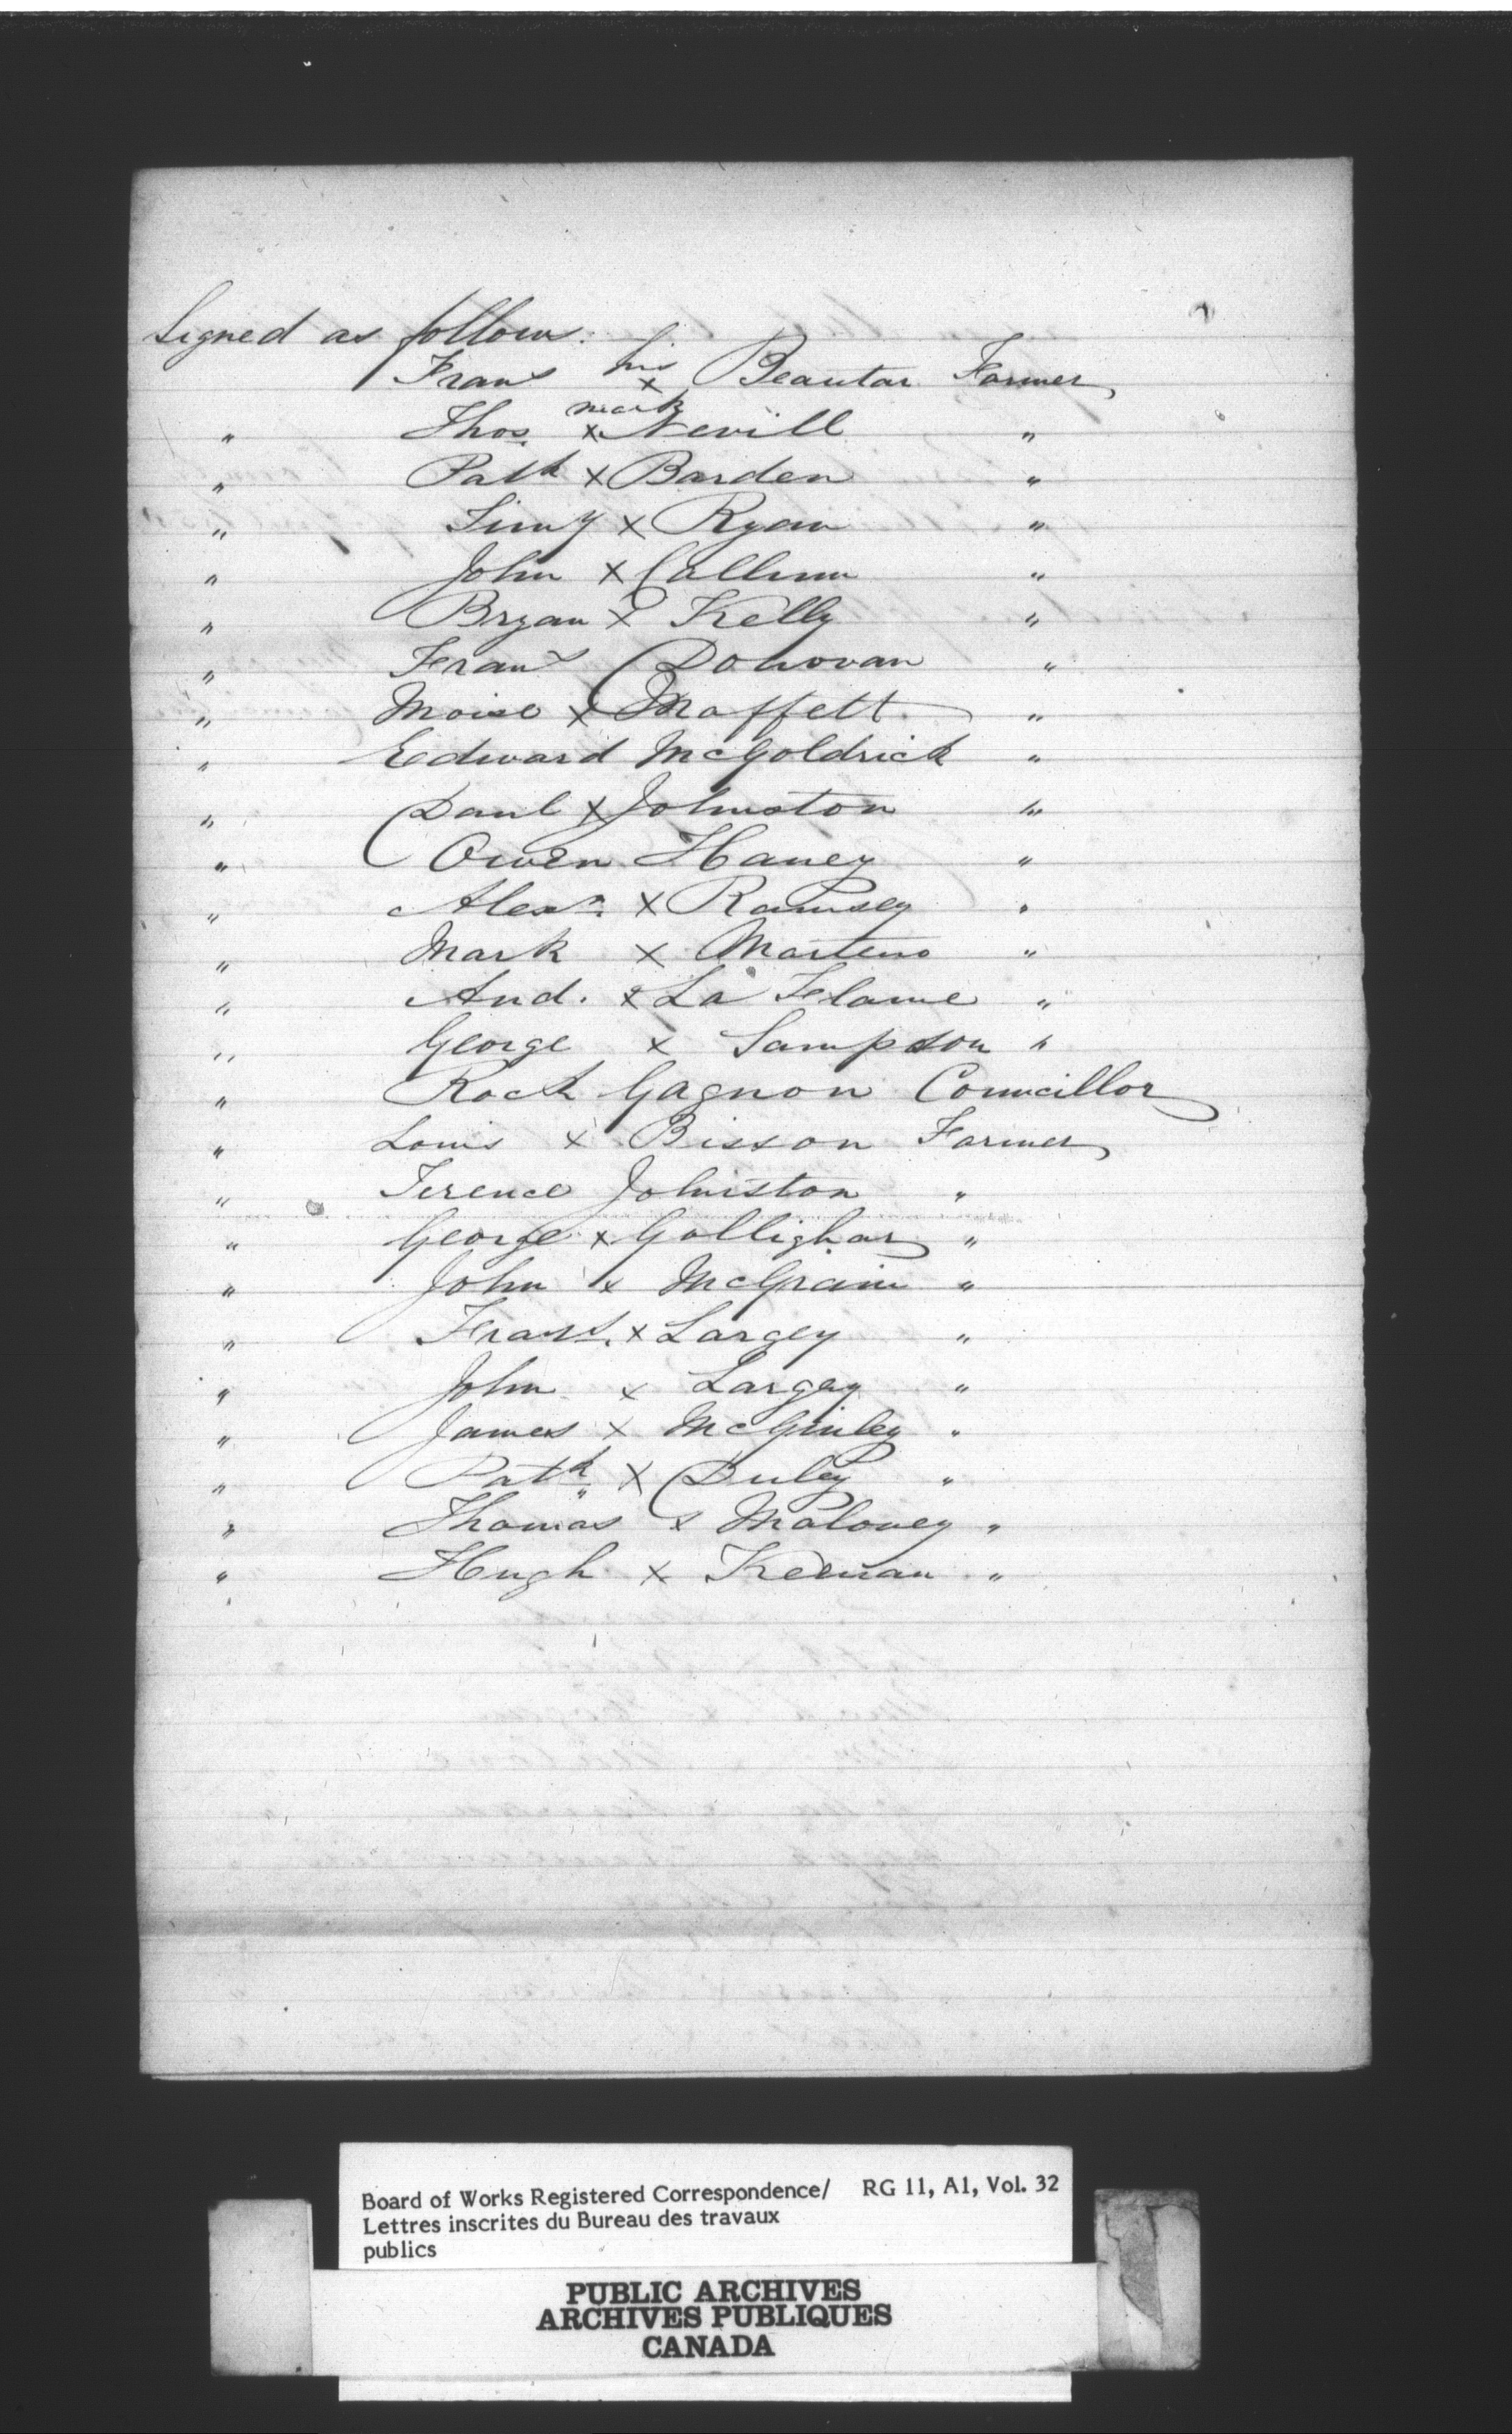 Signed as follows:
Frans his x mark Beautar Farmer
" Thos. x Nevill "
" Patk x Barden "
" Timy x Ryan "
" John x Callum "
" Bryan x Kelly "
" Frans Donovan "
" Moise x Maffett "
" Edward McGoldrick "
" Danl x Johnston "
" Owen Haney "
" Alexr. x Ramsey "
" Mark x Martens "
" And. x La Flame "
" George x Sampson "
" Rock Gagnon Councillor
" Louis x Bisson Farmer
" Terence Johnston "
" George x Gollighar "
" John x McGrain "
" Frans. x Largey "
" John x Largey "
" James x McGinley "
" Patk. x Duley "
" Thomas x Maloney "
" Hugh x Keenan "
Board of Works Registered Correspondence/ RG 11, A1, Vol. 32
Lettres inscrites du Bureau des travaux
publics
PUBLIC ARCHIVES
ARCHIVES PUBLIQUES
CANADA